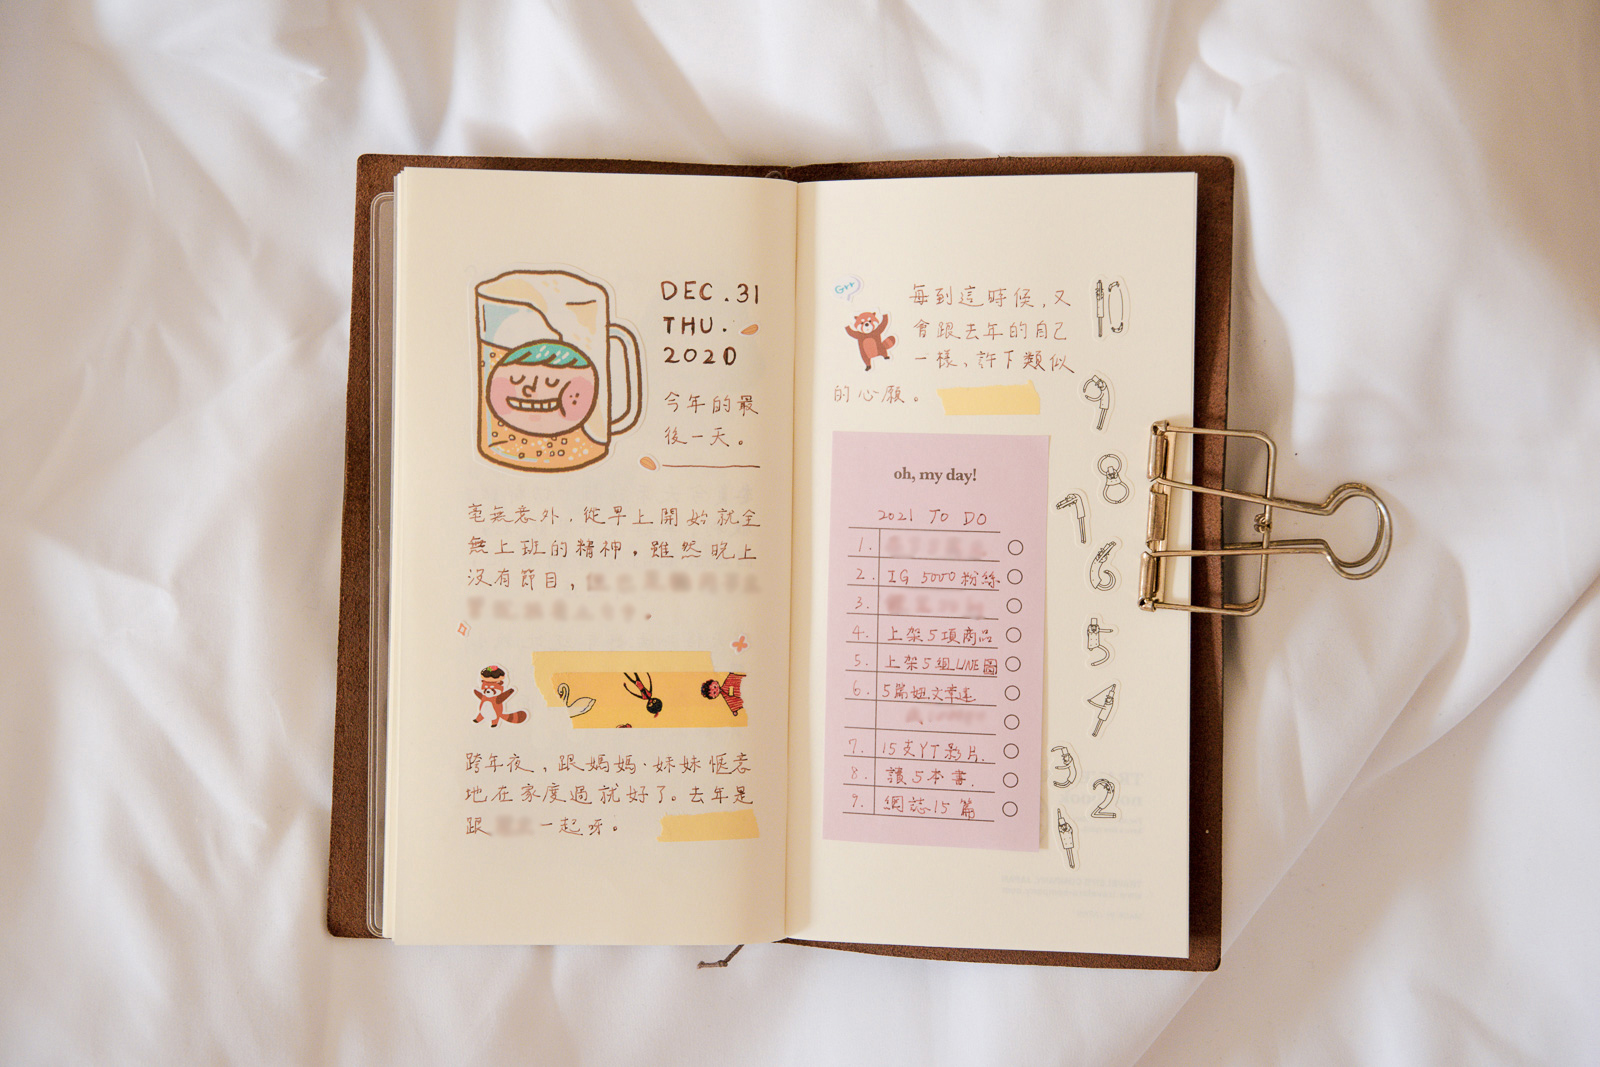 DEC.31
THU.
2020
今年的最
後一天。
毫無意外,從早上開始就全
無上班的精神。雖然晚上
沒有節目,
跨年夜、跟媽媽、妹妹愜意
地在家度過就好了。去年是
跟 一起呀。
G++
每到這時候,又
會跟去年的自己
一樣、許下類似
的心願。
oh, my day!
2021 TO DO
1.
2. IG 5000粉絲
3.
4. 上架5項商品
5. 上架5組LINE圖
6. 5篇妞文章達
7. 15支YT影片.
8. 讀5本書.
9. 網誌15篇
10
9
8
7
6
5
4
3
2
1